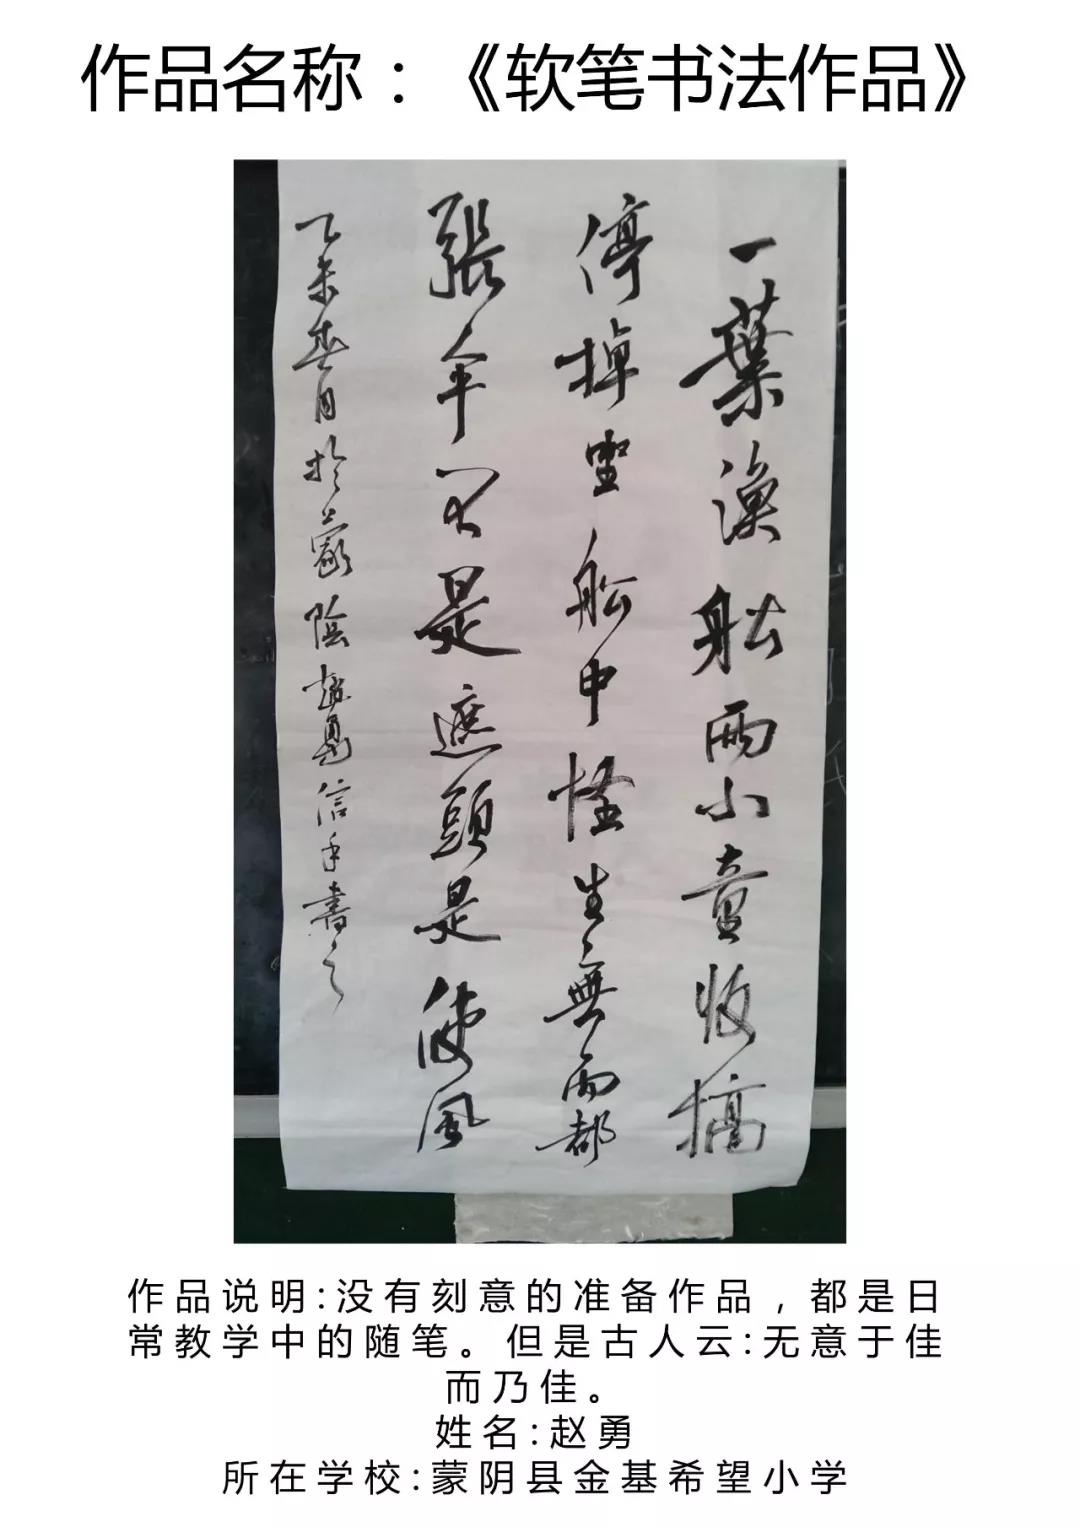 作品名称：《软笔书法作品》
一葉漁船兩小童收搞
停掉坐船中怪生無雨都
張伞不是遮頭是使風
乙未春月於蒙陰趙勇信手書之
作品说明:没有刻意的准备作品，都是日
常教学中的随笔。但是古人云:无意于佳
而乃佳。
姓名:赵勇
所在学校:蒙阴县金基希望小学